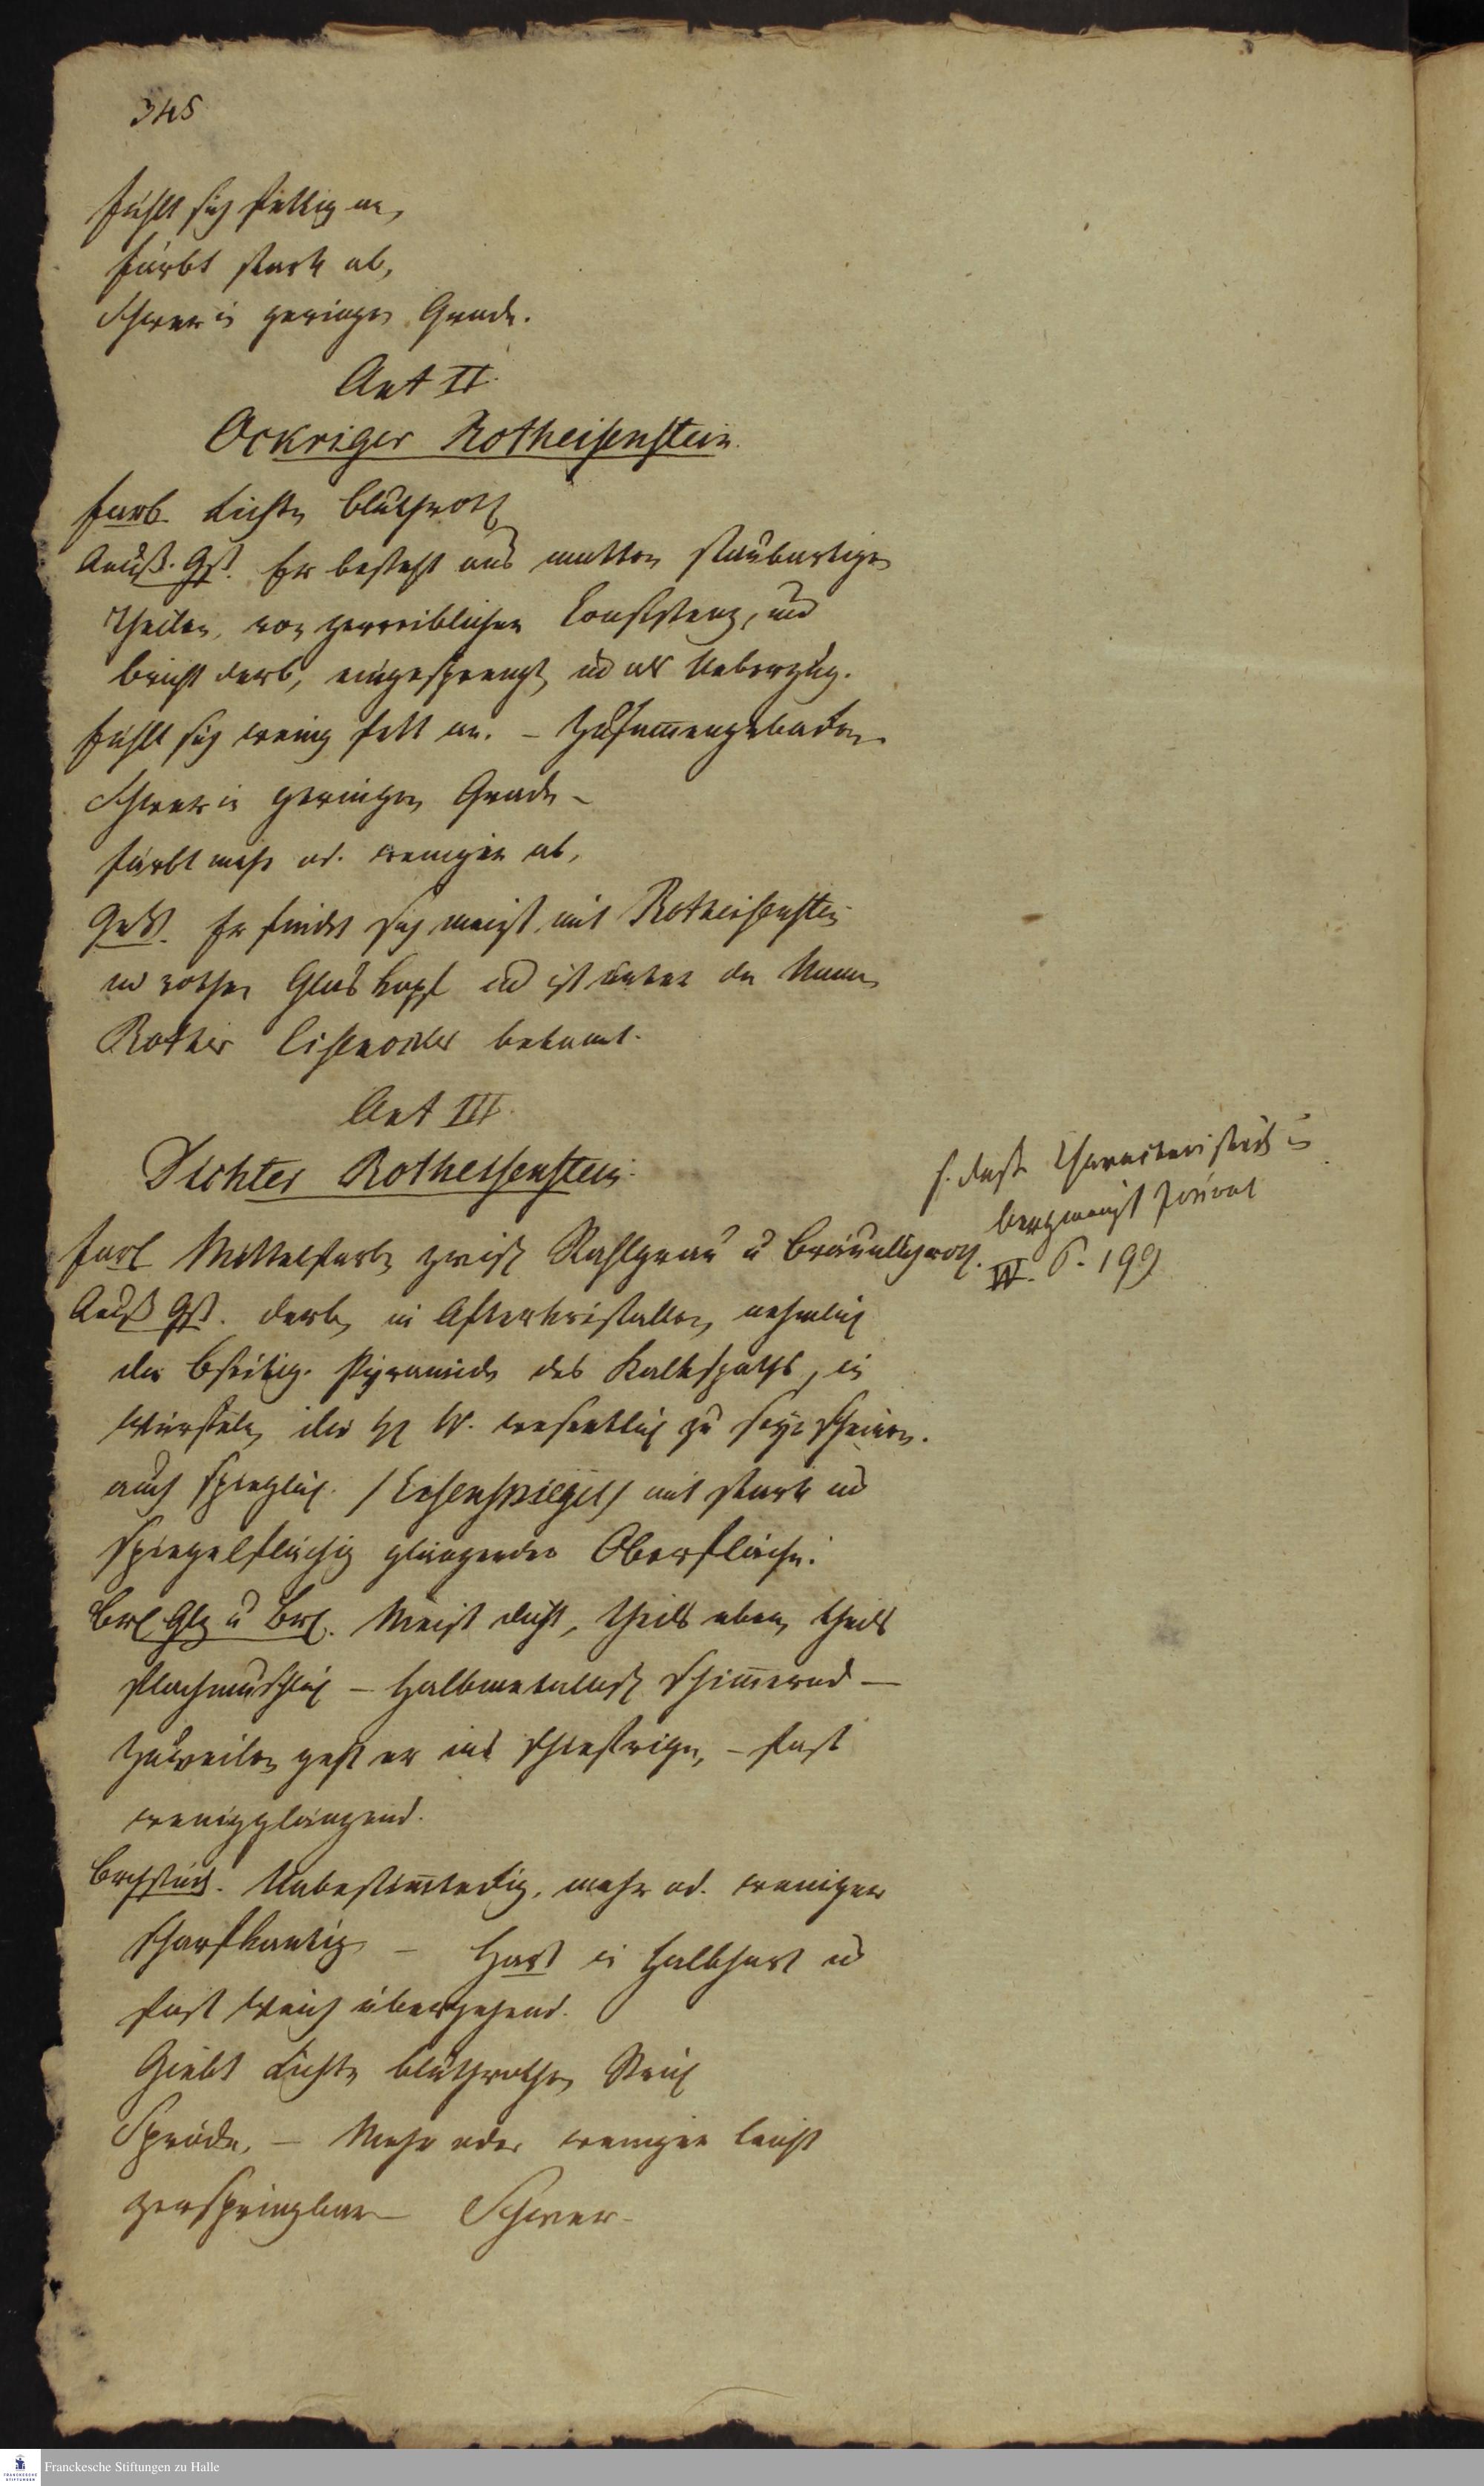 345
fühlt sich fettig an,
färbt stark ab,
Schwer in geringen Grade.
Art II.
Ockriger Rotheisenstein.
Farb. Lichte blutroth
Aeuß. Gst. Er besteht aus matten staubartigen
Theilen, von zerreiblicher Consistenz, und
bricht derb, eingesprengt, und als Ueberzug.
fühlt sich wenig fett an. – Zusammengebacken
Schwer in geringen Grade –
färbt mehr od. weniger ab,
Er findet sich meist mit Rotheisenstein
rothen Glaskopf und ist unter den Namen
Rother Eisenocker bekannt.
Art III.
Dichter Rotheisenstein.
s. dess. Characteristick in
bergmänn. Journal
IV. S. 199
Farb Mittelfarbe zwisch Stahlgrau u Bräunlichroth.
Aeuß Gst. derb, in Afterkristallen, nehmlich
der 6seitig. Pyramide des Kalkspaths, in
Würfeln, die H W. wesentlich zu seyn scheinen.
auch spieglich. /Eisenspiegel/ mit stark und
spiegelflächig glänzender Oberfläche.
Brch Glz u Brch. Meist dicht, theils eben, theils
flachmuschlich – Halbmetallisch schimmernd –
Zuweilen geht er ins schiefrige, – fast
wenigglänzend.
Brchstück. Unbestimmteckig, mehr od. weniger
scharfkantig – Hart in halbhart und
fast weich übergehend.
Giebt Lichte blutrothen Strich
Spröde, – Mehr oder weniger leicht
zerspringbar – Schwer –
Franckesche Stiftungen zu Halle